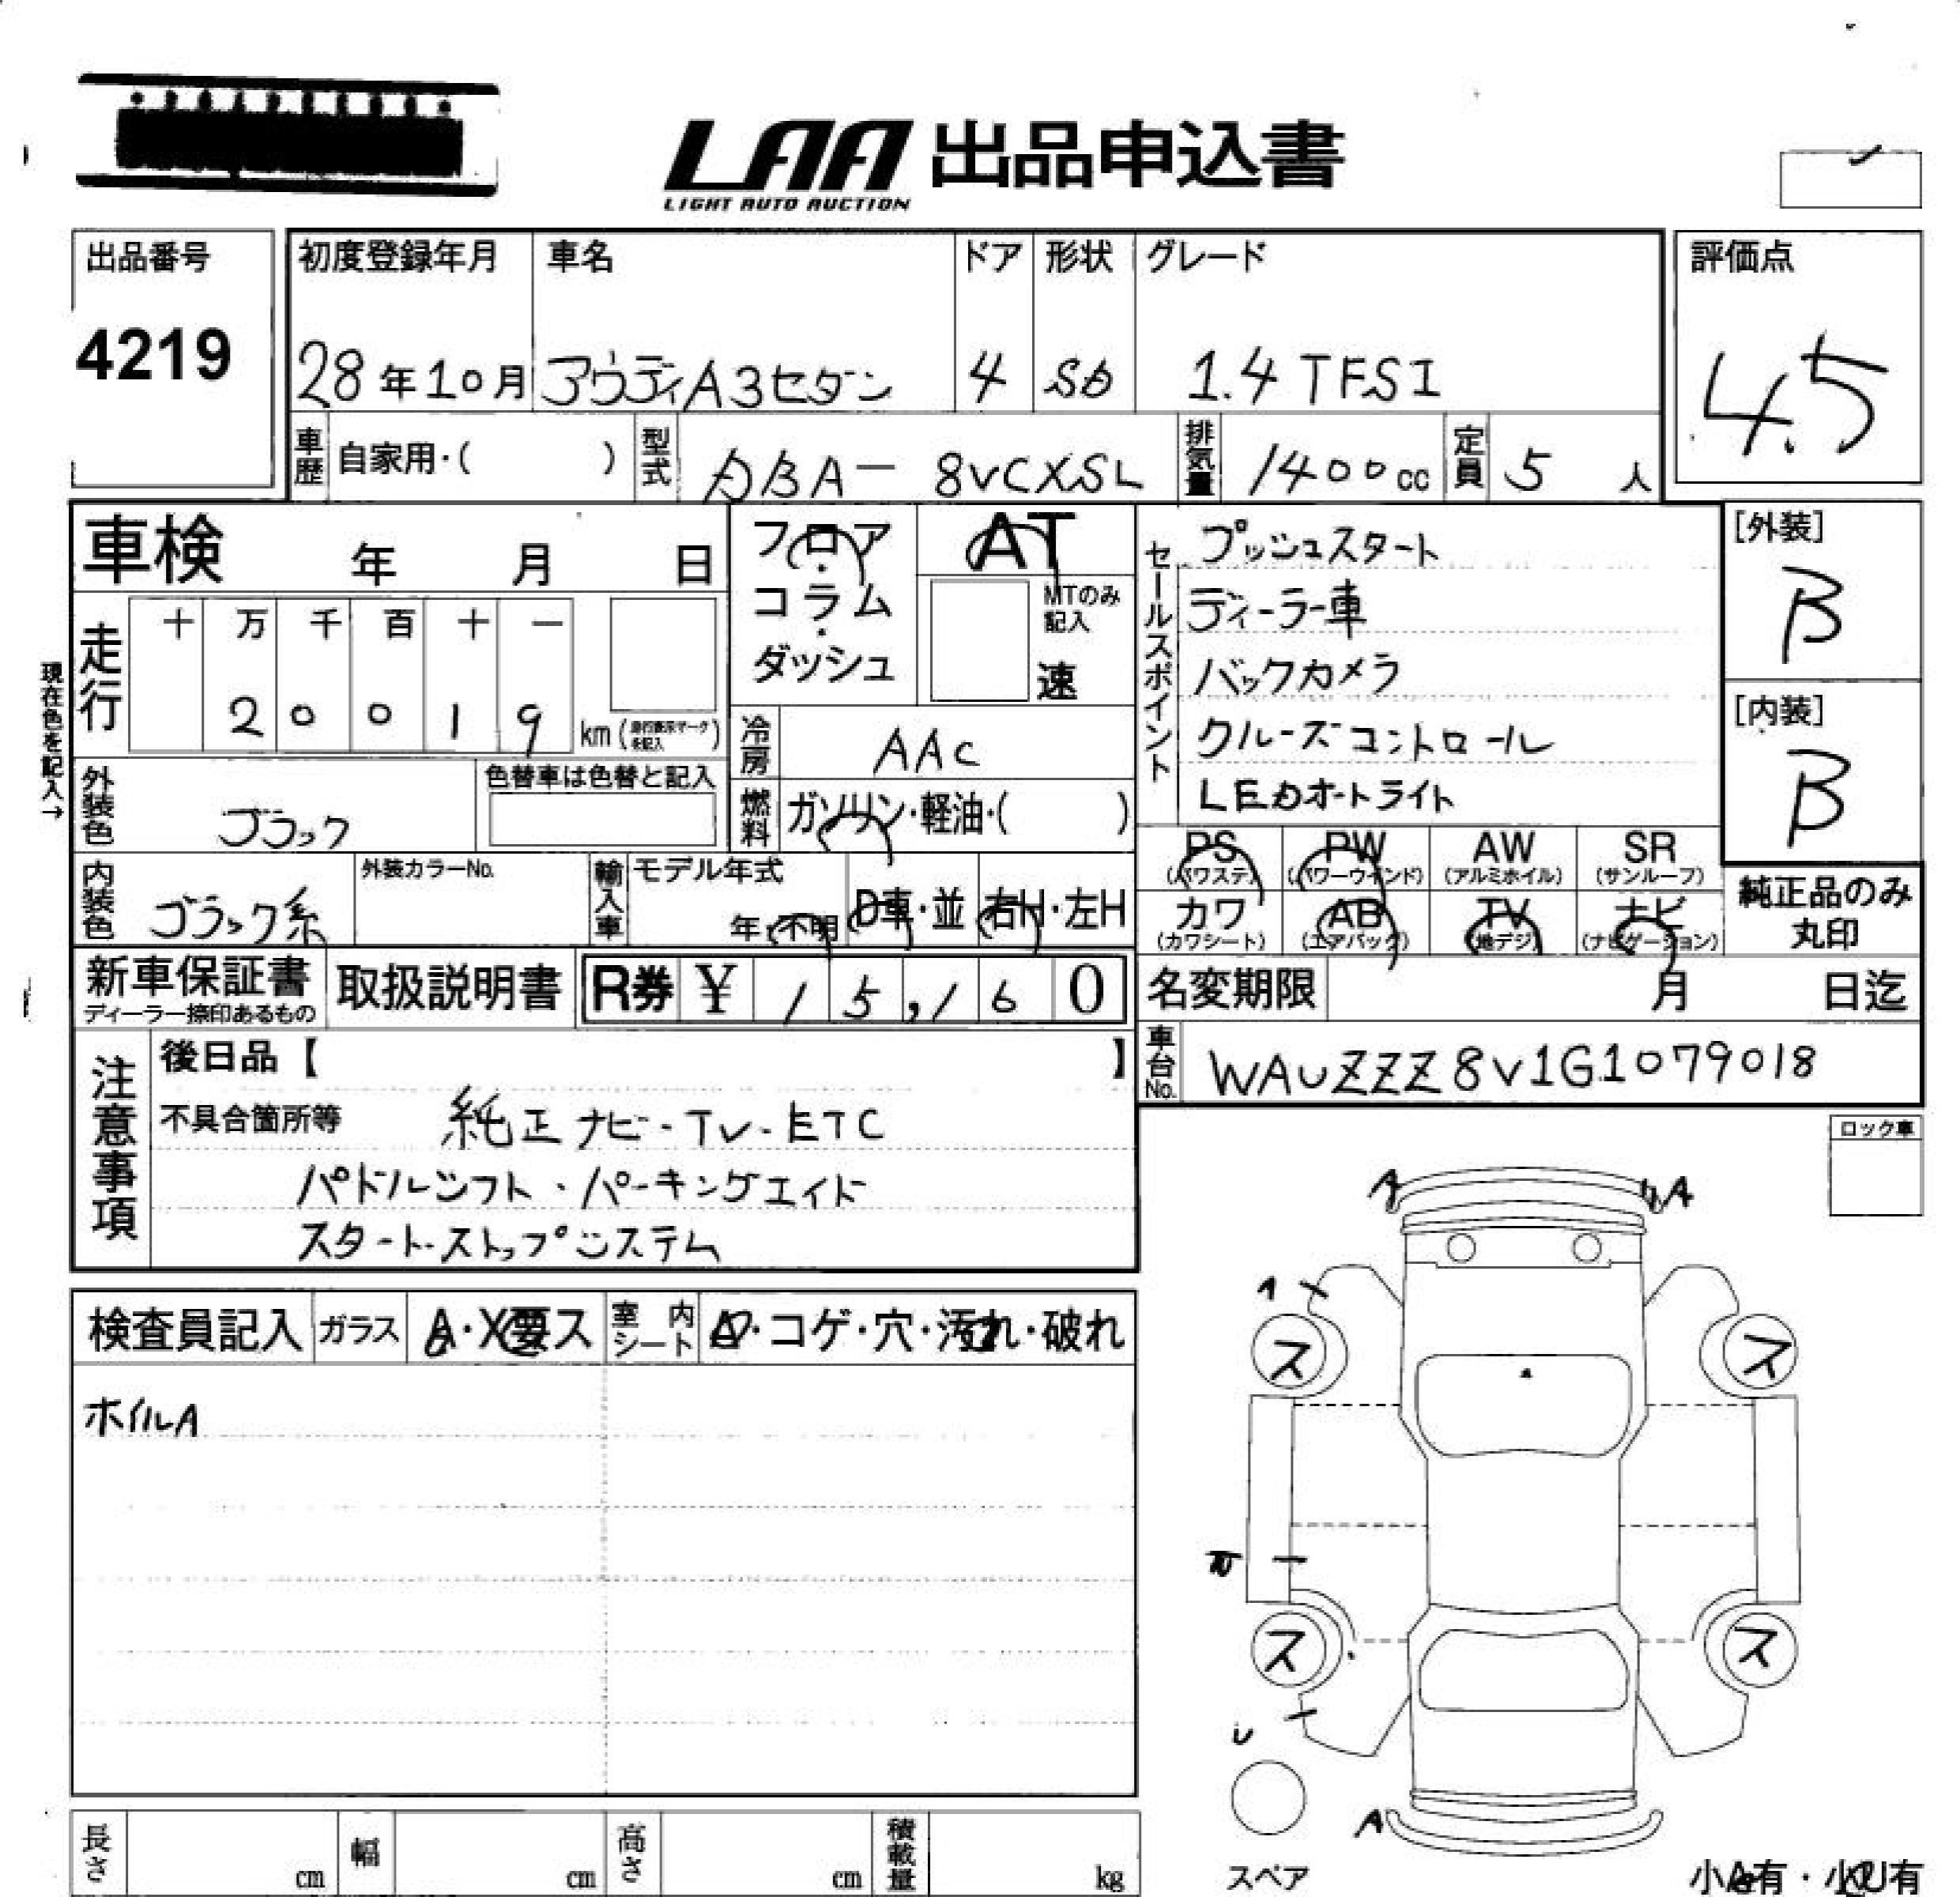 LAA 出品申込書
LIGHT AUTO AUCTION
出品番号
4219
初度登録年月
28年10月
車名
アウディA3セダン
ドア
4
形状
SD
グレード
1.4 TFSI
評価点
4.5
車歴 自家用・( )
型式 DBA- 8VCXSL
排気量 1400cc
定員 5 人
車検 年 月 日
フロア・コラム・ダッシュ
AT
MTのみ記入
速
セールスポイント
プッシュスタート
ディーラー車
バックカメラ
クルーズコントロール
LEDオートライト
[外装]
B
[内装]
B
現在色を記入→
走行
十 万 千 百 十 一
2 0 0 1 9 km
冷房 AAC
外装色 ブラック
色替車は色替と記入
燃料 ガソリン・軽油・( )
内装色 ブラック系
外装カラーNo.
輸入車
モデル年式
年・不明
D車・並
右H・左H
PS (パワステ)
PW (パワーウインド)
AW (アルミホイル)
SR (サンルーフ)
カワ (カワシート)
AB (エアバッグ)
TV (地デジ)
ナビ (ナビゲーション)
純正品のみ
丸印
新車保証書
ディーラー捺印あるもの
取扱説明書
R券 ¥ 15,160
名変期限 月 日迄
車台No. WAUZZZ8V1G1079018
注意事項
後日品【 】
不具合箇所等 純正ナビ・TV・ETC
パドルシフト・パーキングエイド
スタートストップシステム
ロック車
検査員記入
ガラス A・X要ス
室内シート
・コゲ・穴・汚れ・破れ
ホイルA
A
A
A
ス
ス
ス
ス
U
A
スペア
長さ cm
幅 cm
高さ cm
積載量 kg
小A有・小U有